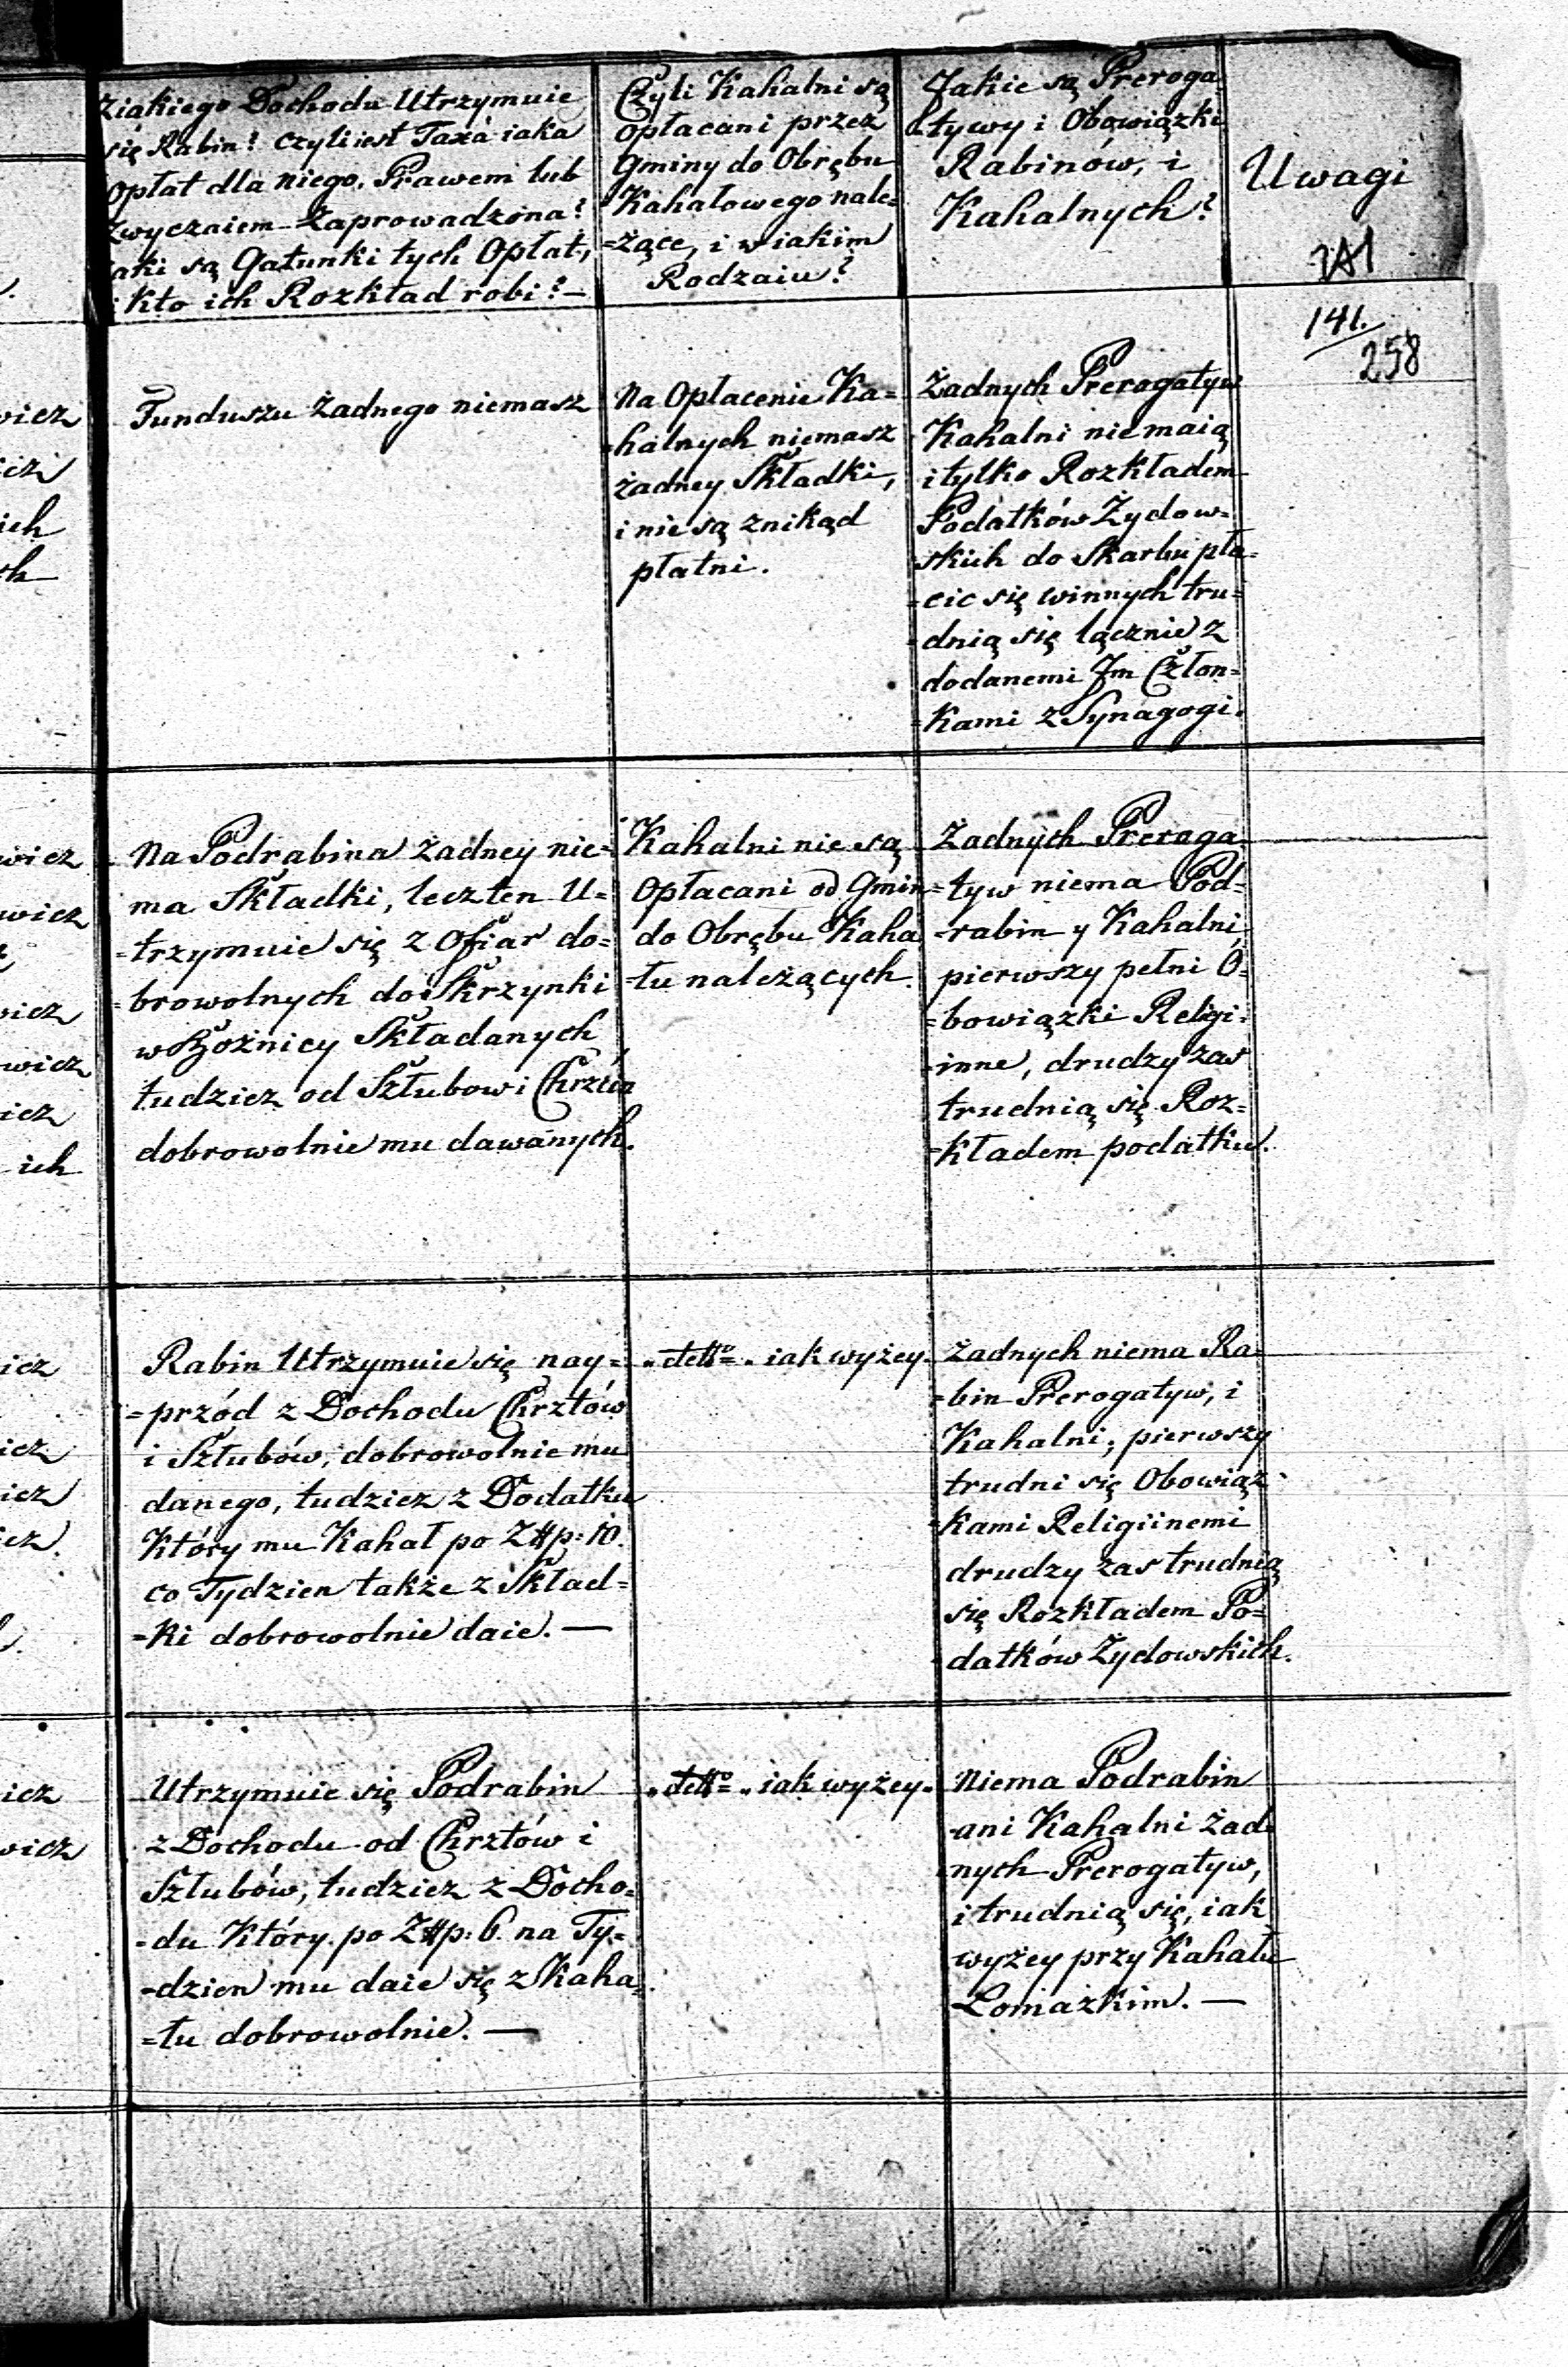 Ziakiego Dochodu Utrzymuie
się Rabin? czyli iest Taxa iaka
Opłat dla niego, Prawem lub
Zwyczaiem Zaprowadzona?
iaki są Gatunki tych Opłat,
i kto ich Rozkład robi? —
Czyli Kahalni są
opłacani przez
Gminy do Obrębu
Kahałowego nale=
=żące, i w iakim
Rodzaiu?
Jakie są Preroga
tywy i Obowiązki
Rabinów, i
Kahalnych?
Uwagi
141.
258
wicz
ich
Funduszu żadnego niemasz
Na Opłacenie Ka=
=halnych niemasz
żadney Składki,
i nie są znikąd
płatni.
Żadnych Prerogatyw
Kahalni niemaią
i tylko Rozkładem
Podatków Żydow=
skich do Skarbu pła=
=cic się winnych tru=
=dnią się łącznie z
dodanemi Jm Człon=
=kami z Synagogi.
wicz
wicz
wicz
wicz
icz
ich
Na Podrabina żadney nie=
ma Składki, lecz ten U=
=trzymuie się z Ofiar do=
=browolnych do Skrzynki
w Bożnicy Składanych
tudziez od Szłubow i Chrztów
dobrowolnie mu dawanych.
Kahalni nie są
Opłacani od Gmin
do Obrębu Kaha
=łu należących.
Żadnych Preroga
=tyw niema Pod=
=rabin y Kahalni,
pierwszy pełni O=
=bowiązki Religi=
inne, drudzy zas
trudnią się Roz=
=kładem podatku.
icz
icz
icz
icz.
Rabin Utrzymuie się nay=
=przód z Dochodu Chrztów
i Szłubów, dobrowolnie mu
danego, tudziez z Dodatku
Który mu Kahał po Złp: 10.
co Tydzien także z Skład=
=ki dobrowolnie daie. —
„ detto „ iak wyżey.
Żadnych niema Ra=
=bin Prerogatyw, i
Kahalni; pierwszy
trudni się Obowiąz=
=kami Religiinemi
drudzy zas trudnią
się Rozkładem Po=
datków Żydowskich.
icz
wicz
Utrzymuie się Podrabin
z Dochodu od Chrztów i
Szłubów, tudziez z Docho=
=du Który po Złp: 6. na Ty=
=dzien mu daie się z Kaha=
=łu dobrowolnie. —
„ detto „ iak wyżey.
Niema Podrabin
ani Kahalni żad=
nych Prerogatyw,
i trudnią się, iak
wyżey przy Kahału
Łomazkim. —